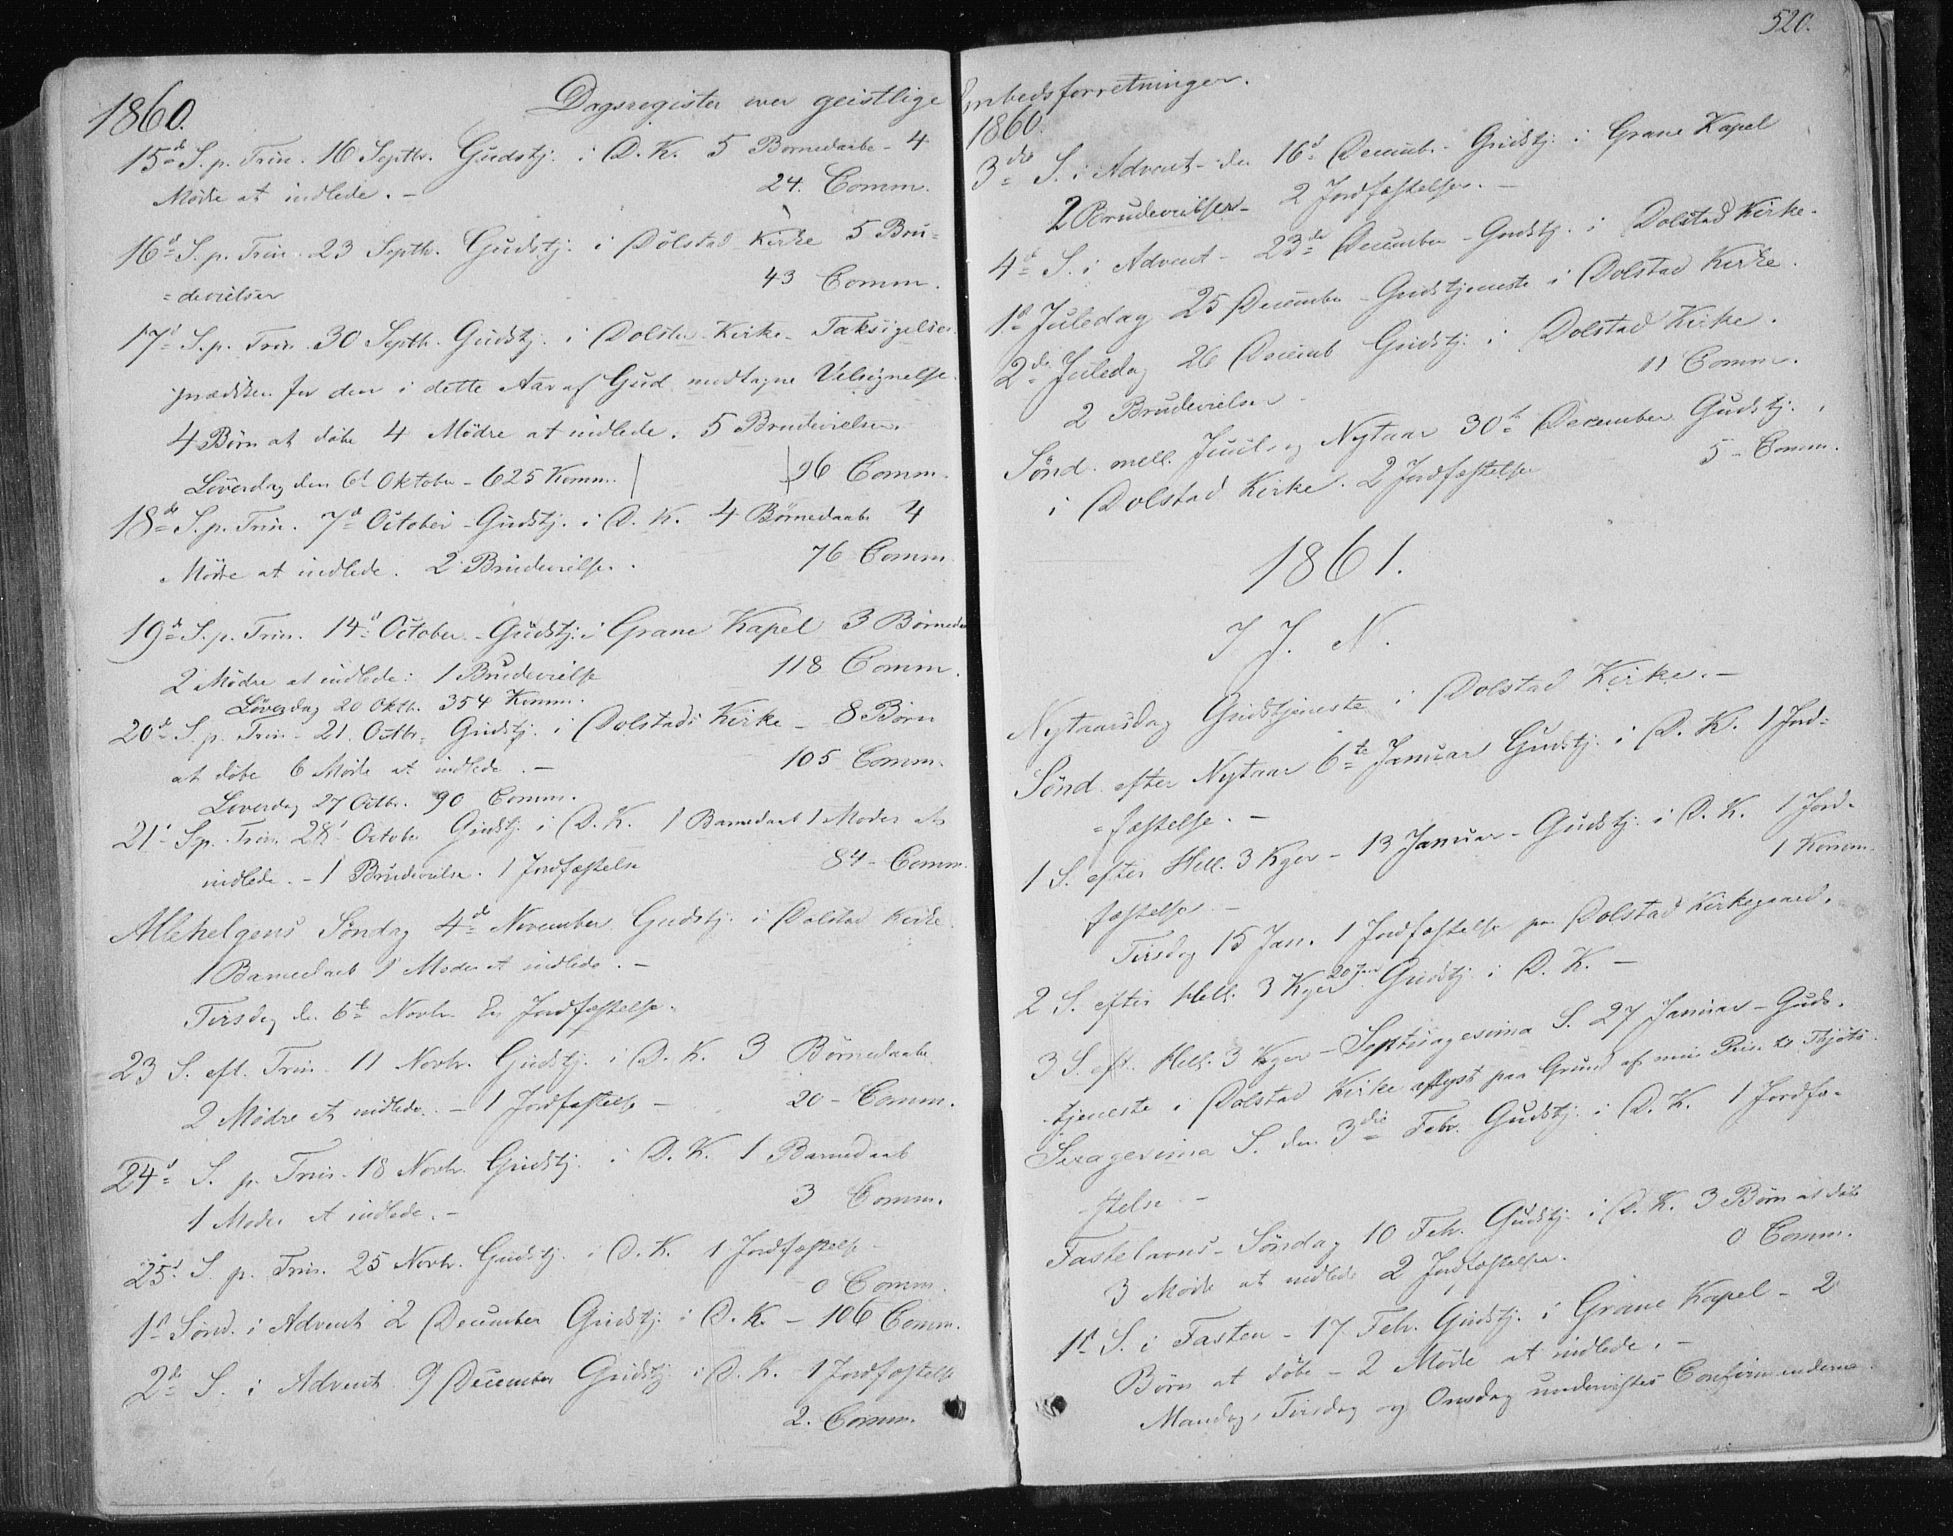 520.
Dagsregister over geistlige Embedsforretninger.
1860.
15d S. p. Trin. 16 Septbr. Gudstj. i D. K. 5 Børnedaabe - 4
Mødre at indlede. - 24. Comm.
16d S. p. Trin. 23 Septb. Gudstj. i Dolstad Kirke 5 Bru=
=devielser 43 Comm.
17d S. p. Trin. 30 Septb. Gudstj. i Dolstad Kirke. Taksigelses
prædiken for den i dette Aar af Gud modtagne Velsignelse.
4 Børn at døbe 4 Mødre at indlede. 5 Brudevielser.
Løverdag den 6d Oktober - 625 Komm. 26 Comm.
18de S. p. Trin. 7d October - Gudstj. i D. K. 4 Børnedaabe 4
Mødre at indlede. 2 Brudevielse. 76 Comm.
19d S. p. Trin. 14d October - Gudstj. i Grane Kapel 3 Børneda
2 Mødre at indlede. 1 Brudevielse 118 Comm.
Løverdag 20 Oktb. 354 Komm.
20d S. p. Trin. 21 Octbr. Gudstj. i Dolstads Kirke - 8 Børn
at døbe 6 Mødre at indlede. - 105 Comm.
Løverdag 27 Octbr. 90 Comm.
21d S. p. Trin. 28d October Gudstj. i D. K. 1 Barnedaab 1 Moder at
indlede. - 1 Brudevielse. 1 Jordfæstelse 84 - Comm.
Allehelgens Søndag 4de November Gudstj. i Dolstad Kirke.
1 Barnedaab 1 Moder at indlede. -
Tirsdag den 6te Novbr. En Jordfæstelse.
23 S. eft. Trin. 11 Novbr. Gudstj. i D. K. 3 Børnedaabe
2 Mødre at indlede. - 1 Jordfæstelse - 20 - Comm.
24d S. p. Trin. 18 Novbr. Gudstj. i D. K. 1 Barnedaab
1 Moder at indlede. - 3 Comm.
25d S. p. Trin. 25 Novbr. Gudstj. i D. K. 1 Jordfæstelse
0 Comm.
1st Sønd. i Advent 2 December Gudstj. i D. K. - 106 Comm.
2de S. i Advent 9 December Gudstj. i D. K. - 1 Jordfæstelse
2. Comm.
1860.
3die S. i Advent - den 16d Decemb. - Gudstj. i Grane Kapel
2 Brudevielser - 2 Jordfæstelser. -
4d S. i Advent - 23de December - Gudstj. i Dolstad Kirke.
1st Juledag 25 December - Gudstjeneste i Dolstad Kirke.
2den Juledag 26 Decemb Gudstj. i Dolstad Kirke.
2 Brudevielser. 11 Comm.
Sønd. mell. Juul og Nytaar 30te December Gudstj.
i Dolstad Kirke. 2 Jordfæstelser 5 - Comm.
1861.
I J. N.
Nytaarsdag Gudstjeneste i Dolstad Kirke. -
Sønd. efter Nytaar 6te Januar Gudstj. i D. K. 1 Jord=
=fæstelse. -
1 S. efter Hell. 3 Kger - 13 Januar - Gudstj. i D. K. 1 Jord-
fæstelse - 1 Komm.
Tirsdag 15 Jan. 1 Jordfæstelse paa Dolstad Kirkegaard.
2 S. efter Hell. 3 Kger 20 Jan Gudstj. i D. K. -
3 S. eft. Hell. 3 Kger - Septuagesima S. 27 Januar - Guds-
tjeneste i Dolstad Kirke aflyst paa Grund af min Reise til Thjøtø.
Sexagesima S. den 3die Febr. Gudstj. i D. K. 1 Jordfæ-
stelse -
Fastelavns-Søndag 10 Feb. Gudstj. i D. K. 3 Børn at døbe
3 Mødre at indlede 2 Jordfæstelser. 0 Comm.
1st S. i Fasten - 17 Feb. Gudstj. i Grane Kapel - 2
Børn at døbe - 2 Mødre at indlede. -
Mandag, Tirsdag og Onsdag undervistes Confirmanderne.